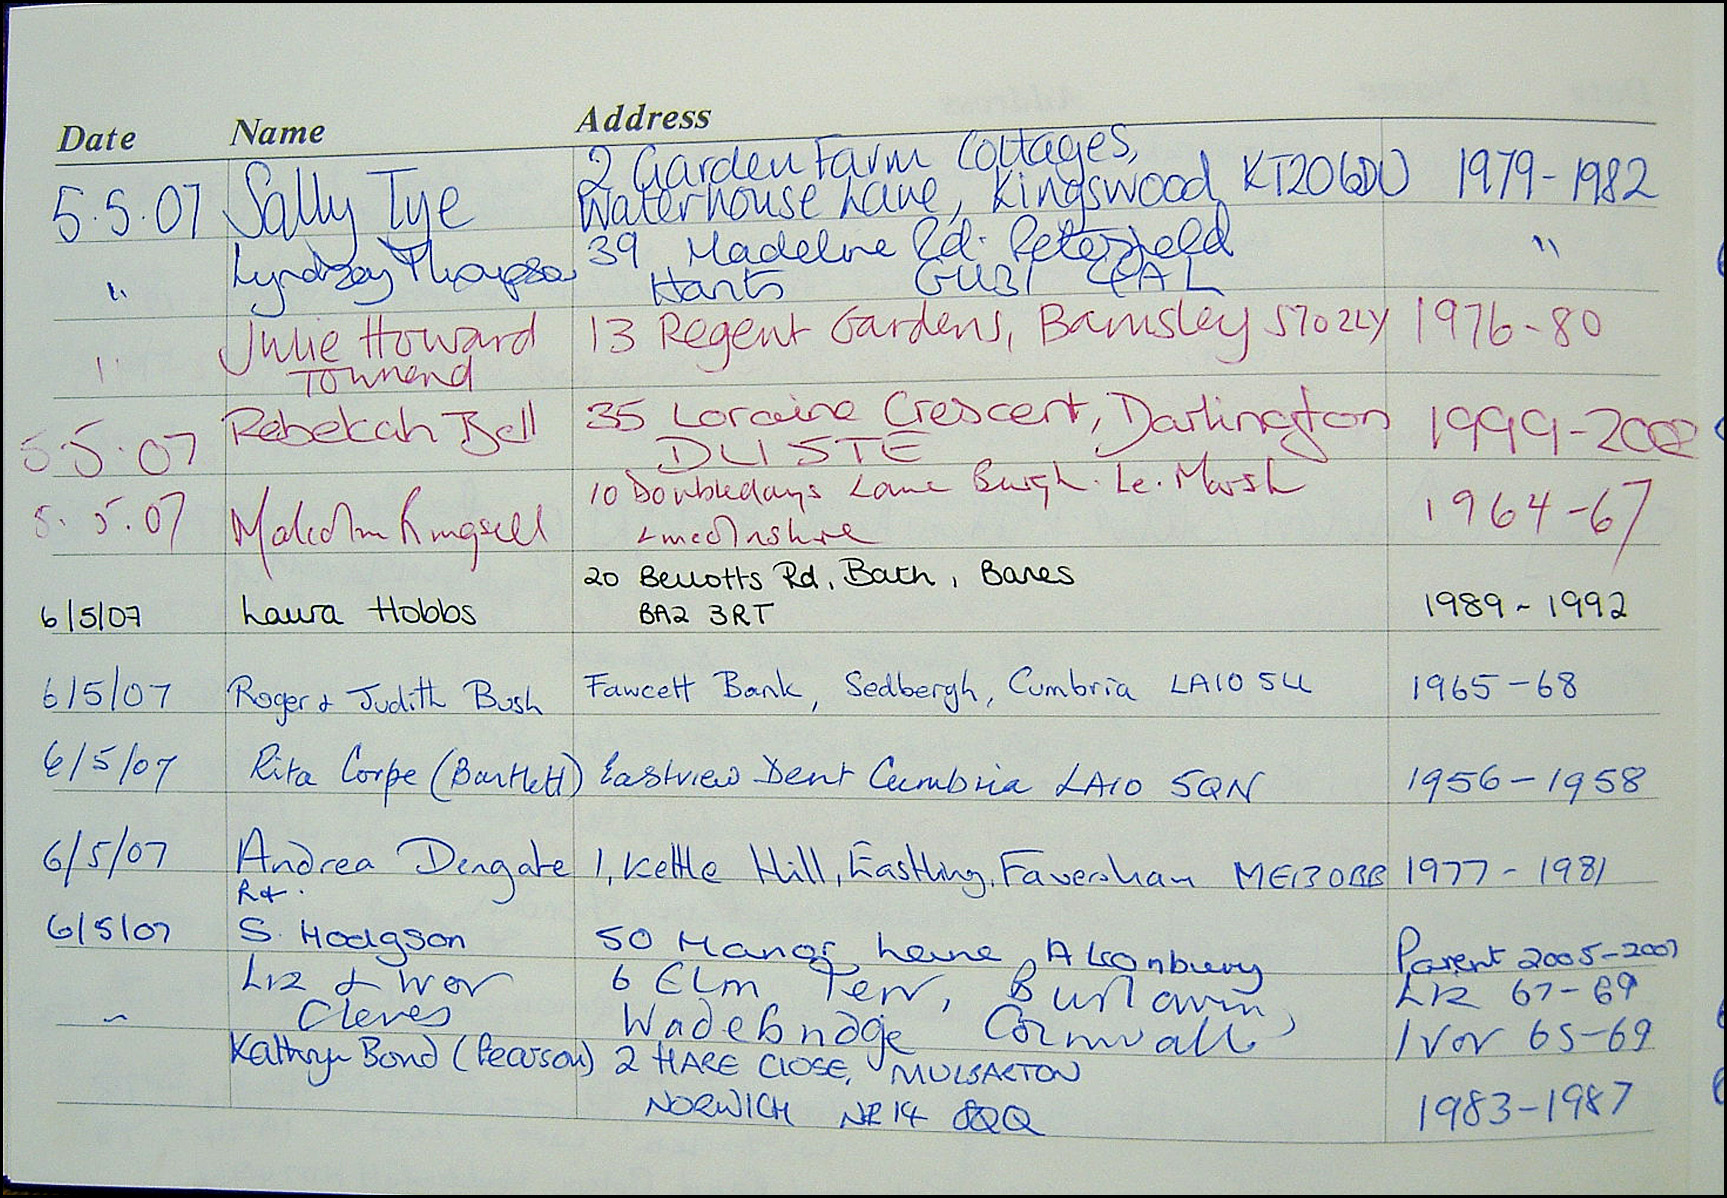 Date Name Address
5.5.07 Sally Tye 2 Garden Farm Cottages, Waterhouse Lane, Kingswood KT20 6DU 1979-1982
" Lyndsay Thompson 39 Madeline Rd. Petersfield "
Hants GU31 4AL
" Julie Howard 13 Regent Gardens, Barnsley S70 2LY 1976-80
Townend
5.5.07 Rebekah Bell 35 Loraine Crescent, Darlington 1999-2002
DL1 5TE
5.5.07 Malcolm 10 Doubledays Lane Burgh. Le. Marsh 1964-67
Lincolnshire
20 Bellotts Rd, Bath, Banes
6/5/07 Laura Hobbs BA2 3RT 1989-1992
6/5/07 Roger & Judith Bush Fawcett Bank, Sedbergh, Cumbria LA10 5LL 1965-68
6/5/07 Rita Corpe (Bartlett) Eastview Dent Cumbria LA10 5QN 1956-1958
6/5/07 Andrea Dengate 1, Kettle Hill, Eastling, Faversham ME13 0BB 1977-1981
R +
6/5/07 S. Hodgson 50 Manor Lane, Alconbury Parent 2005-2007
Liz & Ivor 6 Elm Terr, Burlawn, Liz 67-69
~ Cleves Wadebridge Cornwall Ivor 65-69
Kathryn Bond (Pearson) 2 HARE CLOSE, MULBARTON
NORWICH NR14 8QQ 1983-1987